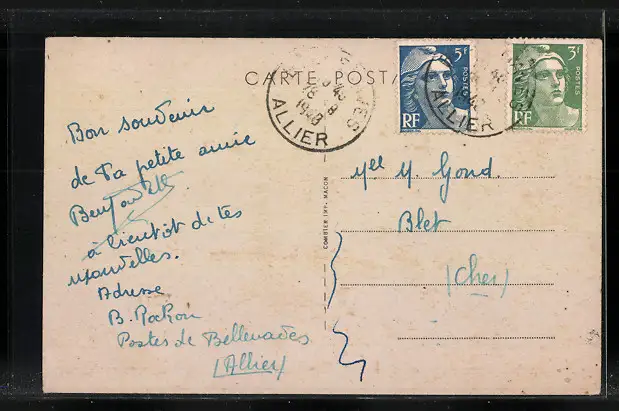 CARTE POSTA
5F
POSTES
RF
3F
POSTES
RF
ALLIER
ALLIER
Bon souvenir
de Ta petite amie
à bientôt de tes
nouvelles.
Adresse
B.
Postes de Bellenaves
(Allier)
COMBIER IMP. MACON
Mlle M. Gond.
Blet
(Cher)